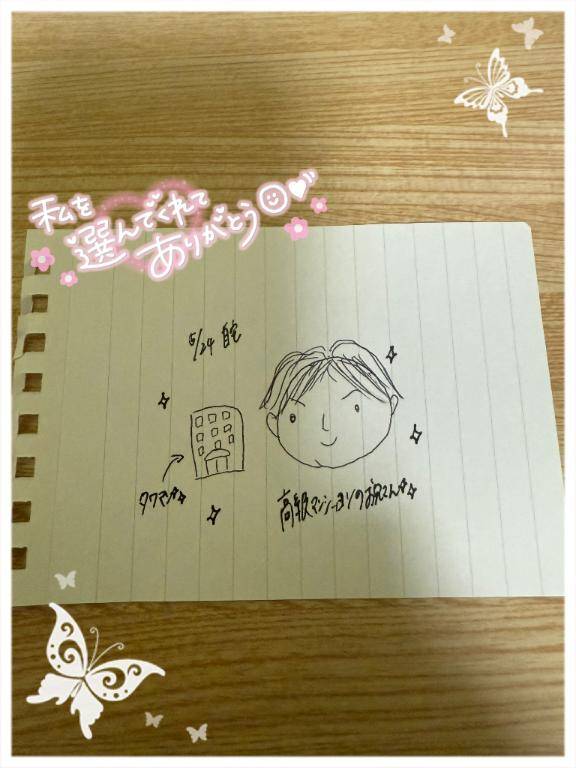 私を
選んでくれて
ありがとう
5/24 自宅
タワマン
高級マンションのお兄さん